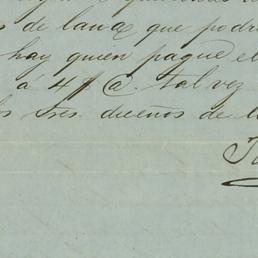 de lana que podr
hay quien pague el
á 4 f @. tal vez
los tres dueños de l